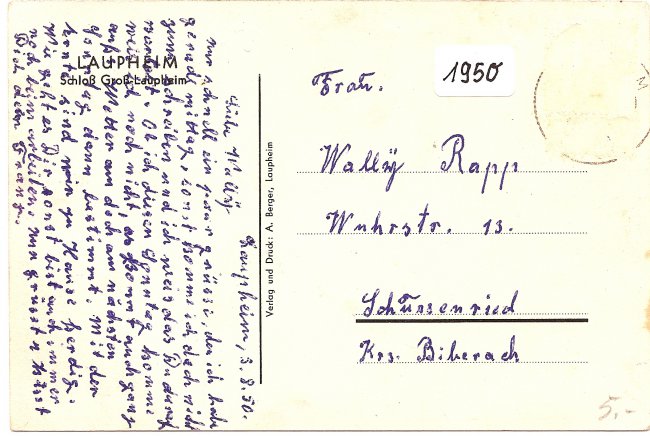 LAUPHEIM
Schloß Groß-Laupheim
Laupheim, 3.8.50.
Liebe Wally
nur schnell ein paar grüsse, da ich habe
gerad mittag, sonst komme ich doch nicht
zum schreiben und ich weis das Du darauf
wartest. Ob ich diesen Sonntag komme
weis ich noch nicht, es kommt auch ganz
aufs Wetter an doch am nächsten
Sonntag dann bestimmt. mit der
sind wir zu Hause fertig.
Wie geht es Dir sonst bist auch immer
noch beim arbeiten. nun grüsst u küsst
Dich dein Franz.
Verlag und Druck: A. Berger, Laupheim
1950
Frau.
Wally Rapp
Wuhrstr. 13.
Schussenried
Krs. Biberach
5.-